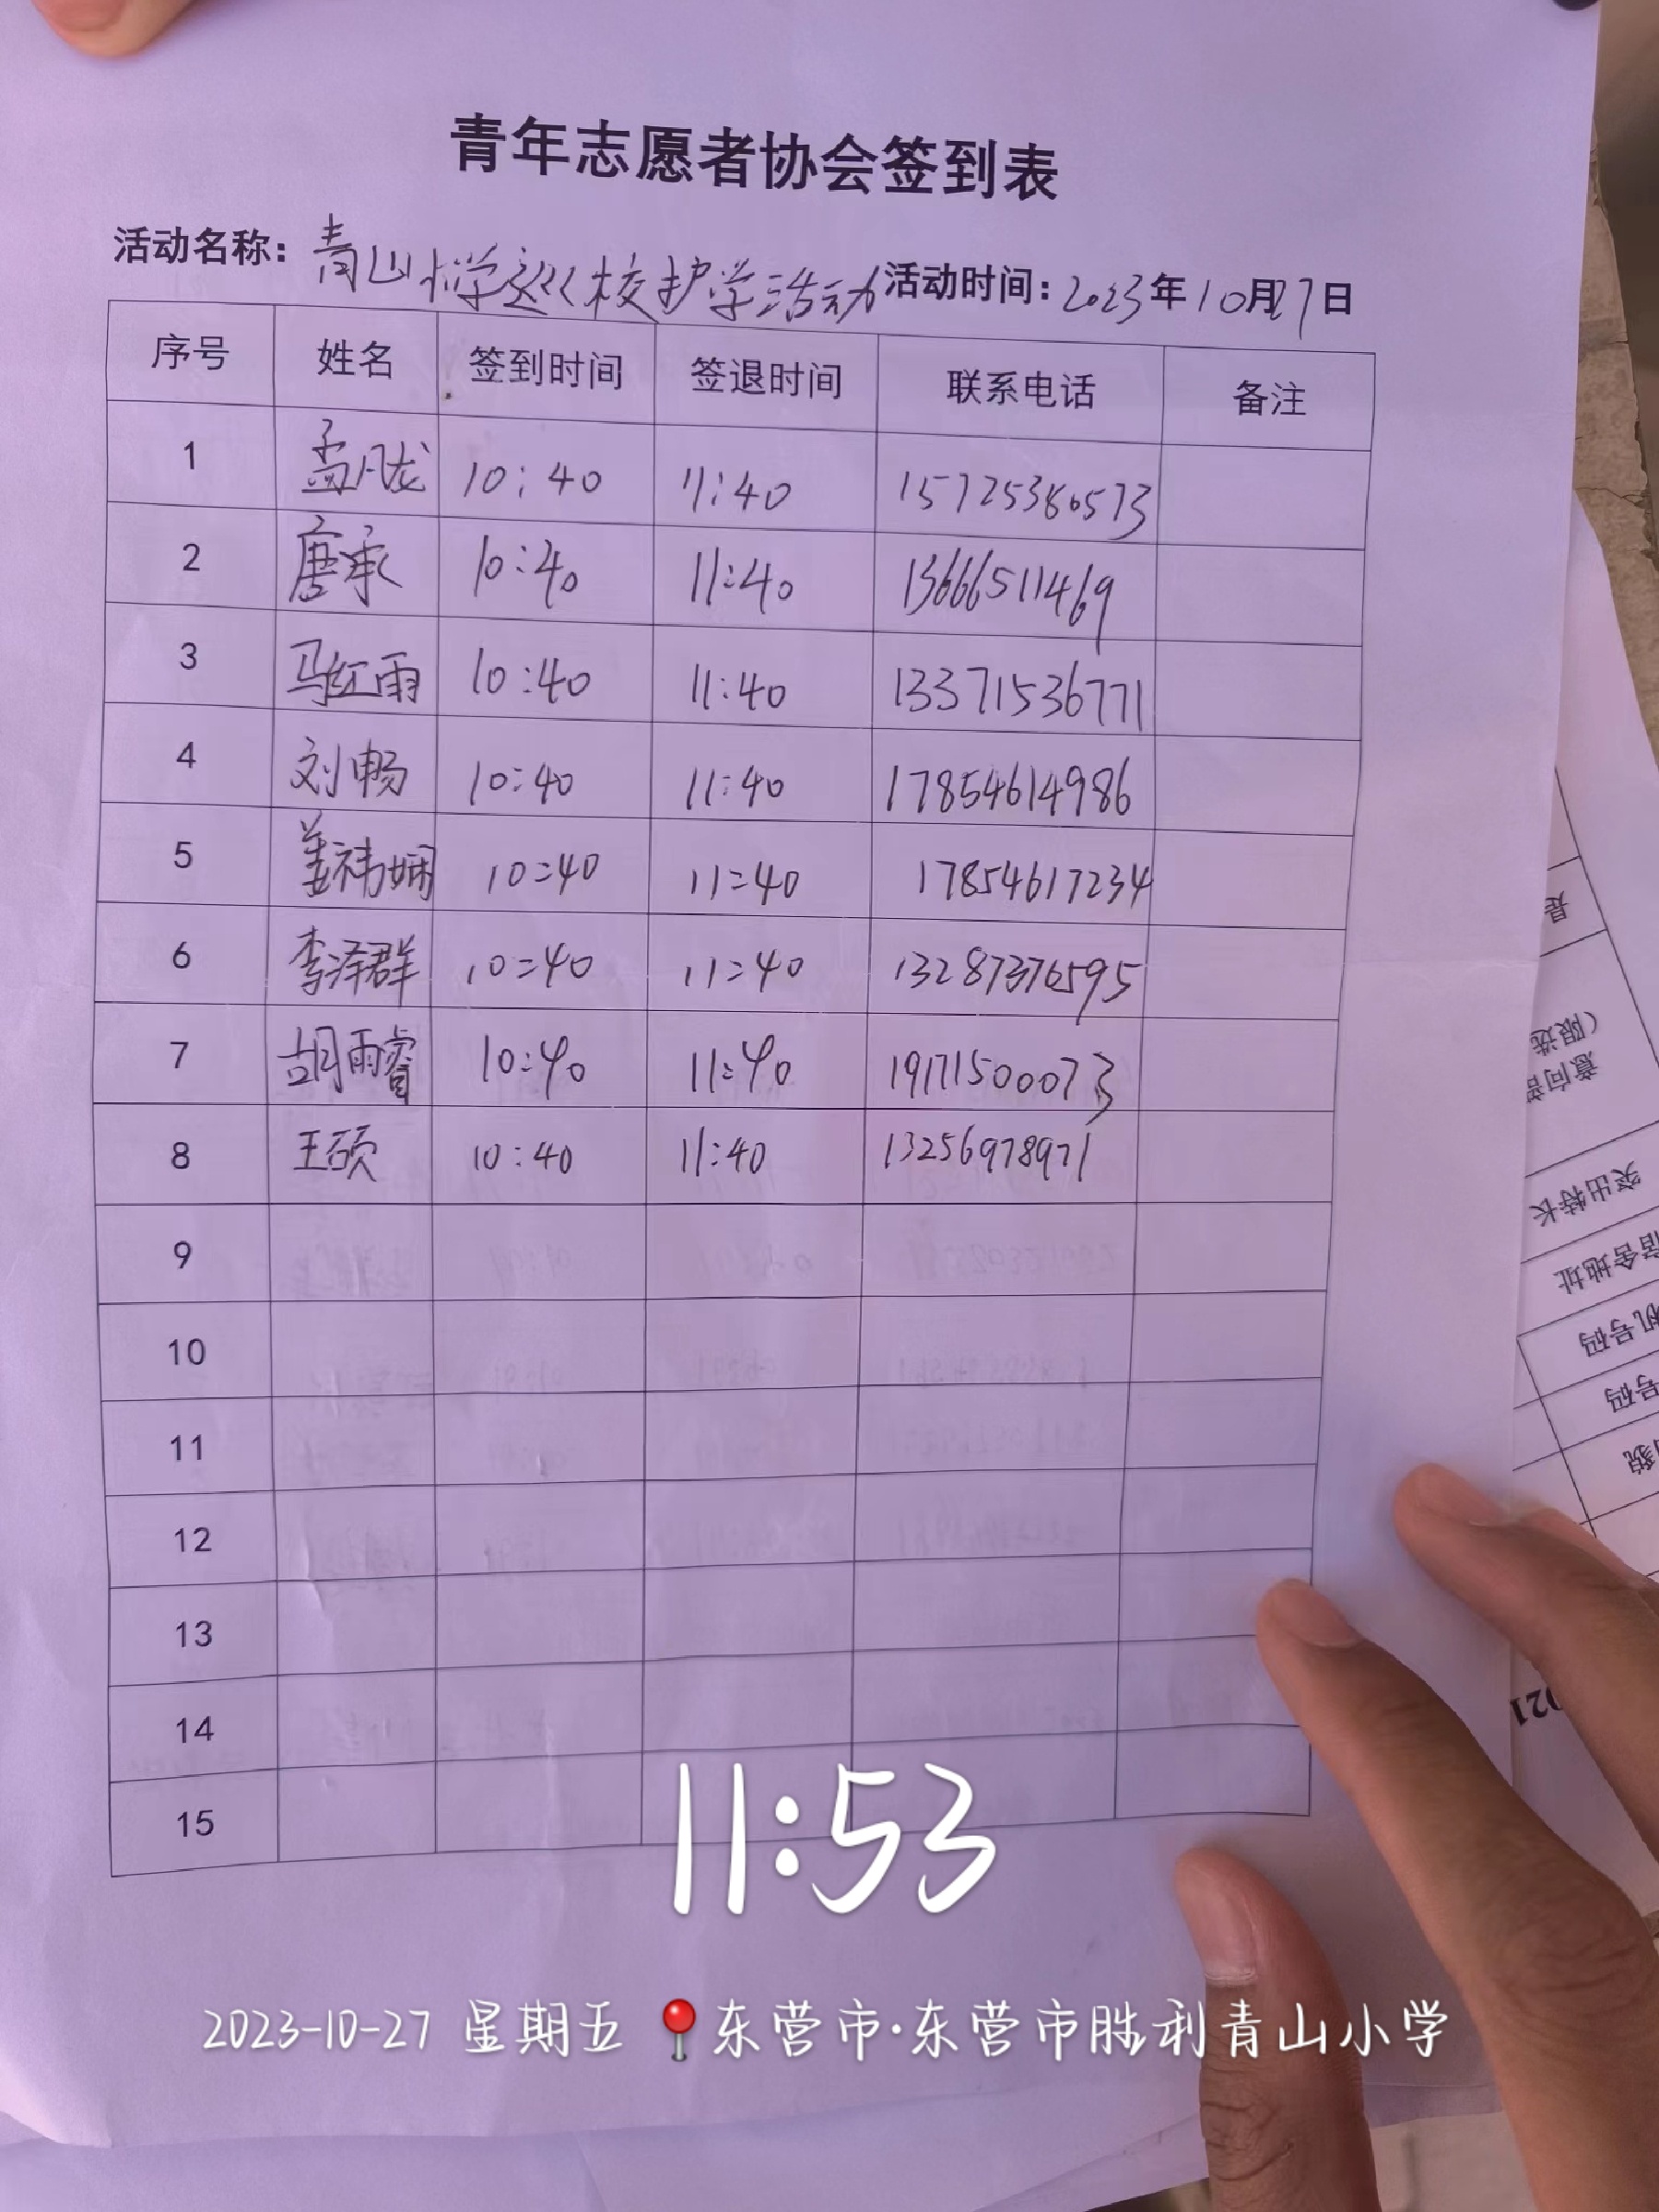 青年志愿者协会签到表
活动名称：青山小学巡校护学活动 活动时间：2023年10月27日
序号 姓名 签到时间 签退时间 联系电话 备注
1 孟凡龙 10:40 11:40 15725380573
2 唐承 10:40 11:40 13666511469
3 马红雨 10:40 11:40 13371536771
4 刘畅 10:40 11:40 17854614986
5 姜祎娴 10:40 11:40 17854617234
6 李泽群 10:40 11:40 13287376595
7 胡雨睿 10:40 11:40 19171500073
8 王硕 10:40 11:40 13256978971
9
10
11
12
13
14
15
11:53
2023-10-27 星期五 📍东营市·东营市胜利青山小学
是
（限选
意向部
突出特长
宿舍地址
机号码
号码
貌
021